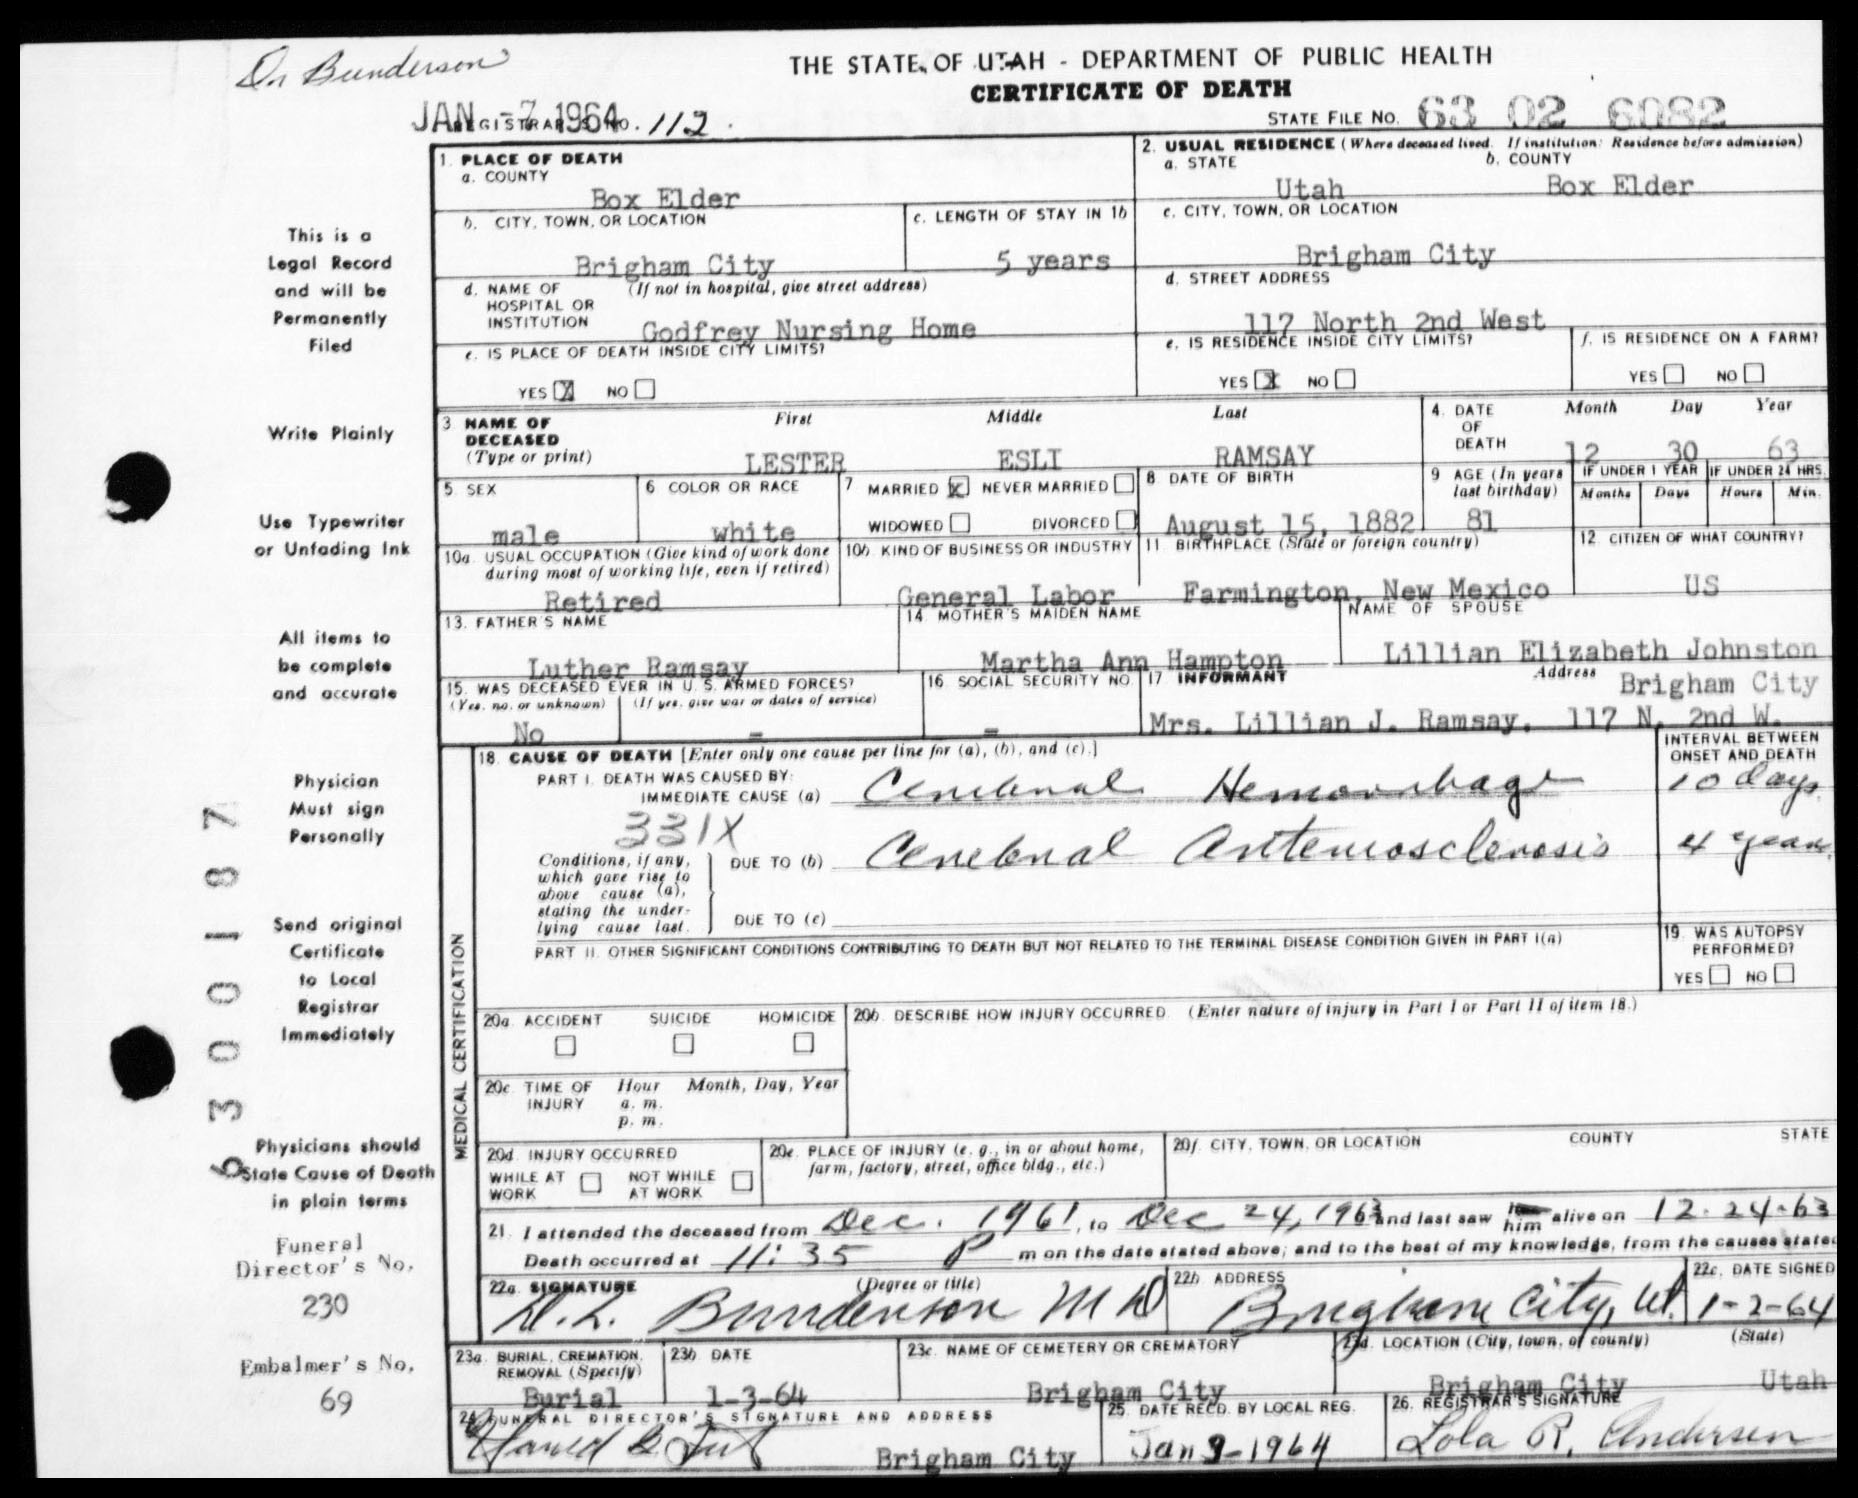 Dr Bunderson
THE STATE OF UTAH - DEPARTMENT OF PUBLIC HEALTH
CERTIFICATE OF DEATH
JAN -7 1964 REGISTRAR'S NO. 112
STATE FILE NO. 63 02 6082
This is a
Legal Record
and will be
Permanently
Filed
Write Plainly
Use Typewriter
or Unfading Ink
All items to
be complete
and accurate
Physician
Must sign
Personally
Send original
Certificate
to Local
Registrar
Immediately
Physicians should
State Cause of Death
in plain terms
Funeral
Director's No.
230
Embalmer's No.
69
6300187
1. PLACE OF DEATH
a. COUNTY
Box Elder
2. USUAL RESIDENCE (Where deceased lived. If institution: Residence before admission)
a. STATE b. COUNTY
Utah Box Elder
b. CITY, TOWN, OR LOCATION
Brigham City
c. LENGTH OF STAY IN 1b
5 years
c. CITY, TOWN, OR LOCATION
Brigham City
d. NAME OF (If not in hospital, give street address)
HOSPITAL OR
INSTITUTION Godfrey Nursing Home
d. STREET ADDRESS
117 North 2nd West
e. IS PLACE OF DEATH INSIDE CITY LIMITS?
YES X NO
e. IS RESIDENCE INSIDE CITY LIMITS?
YES X NO
f. IS RESIDENCE ON A FARM?
YES NO
3 NAME OF DECEASED (Type or print)
First Middle Last
LESTER ESLI RAMSAY
4. DATE OF DEATH
Month Day Year
12 30 63
5. SEX
male
6 COLOR OR RACE
white
7 MARRIED X NEVER MARRIED
WIDOWED DIVORCED
8 DATE OF BIRTH
August 15, 1882
9 AGE (In years last birthday)
81
IF UNDER 1 YEAR IF UNDER 24 HRS.
Months Days Hours Min.
10a. USUAL OCCUPATION (Give kind of work done
during most of working life, even if retired)
Retired
10b. KIND OF BUSINESS OR INDUSTRY
General Labor
11 BIRTHPLACE (State or foreign country)
Farmington, New Mexico
12. CITIZEN OF WHAT COUNTRY?
US
13. FATHER'S NAME
Luther Ramsay
14 MOTHER'S MAIDEN NAME
Martha Ann Hampton
NAME OF SPOUSE
Lillian Elizabeth Johnston
15. WAS DECEASED EVER IN U. S. ARMED FORCES?
(Yes, no, or unknown) (If yes, give war or dates of service)
No -
16 SOCIAL SECURITY NO.
-
17 INFORMANT Address Brigham City
Mrs. Lillian J. Ramsay, 117 N. 2nd W.
MEDICAL CERTIFICATION
18. CAUSE OF DEATH [Enter only one cause per line for (a), (b), and (c).]
INTERVAL BETWEEN
ONSET AND DEATH
PART I. DEATH WAS CAUSED BY:
IMMEDIATE CAUSE (a) Cerebral Hemorrhage 10 days
331X
Conditions, if any,
which gave rise to
above cause (a),
stating the under-
lying cause last.
DUE TO (b) Cerebral Arteriosclerosis 4 years
DUE TO (c)
PART II. OTHER SIGNIFICANT CONDITIONS CONTRIBUTING TO DEATH BUT NOT RELATED TO THE TERMINAL DISEASE CONDITION GIVEN IN PART I(a)
19. WAS AUTOPSY
PERFORMED?
YES NO
20a. ACCIDENT SUICIDE HOMICIDE
20b. DESCRIBE HOW INJURY OCCURRED. (Enter nature of injury in Part I or Part II of item 18.)
20c. TIME OF INJURY
Hour Month, Day, Year
a. m.
p. m.
20d INJURY OCCURRED
WHILE AT WORK NOT WHILE AT WORK
20e. PLACE OF INJURY (e. g., in or about home,
farm, factory, street, office bldg., etc.)
20f. CITY, TOWN, OR LOCATION COUNTY STATE
21. I attended the deceased from Dec. 1961, to Dec 24, 1963 and last saw him alive on 12-24-63
Death occurred at 11:35 P m on the date stated above; and to the best of my knowledge, from the causes stated
22a. SIGNATURE (Degree or title)
D. L. Bunderson M D
22b ADDRESS
Brigham City, Ut.
22c. DATE SIGNED
1-2-64
23a. BURIAL, CREMATION, REMOVAL (Specify)
Burial
23b DATE
1-3-64
23c. NAME OF CEMETERY OR CREMATORY
Brigham City
23d. LOCATION (City, town, or county) (State)
Brigham City Utah
24. FUNERAL DIRECTOR'S SIGNATURE AND ADDRESS
Brigham City
25. DATE RECD. BY LOCAL REG.
Jan 9-1964
26. REGISTRAR'S SIGNATURE
Lola R. Andersen